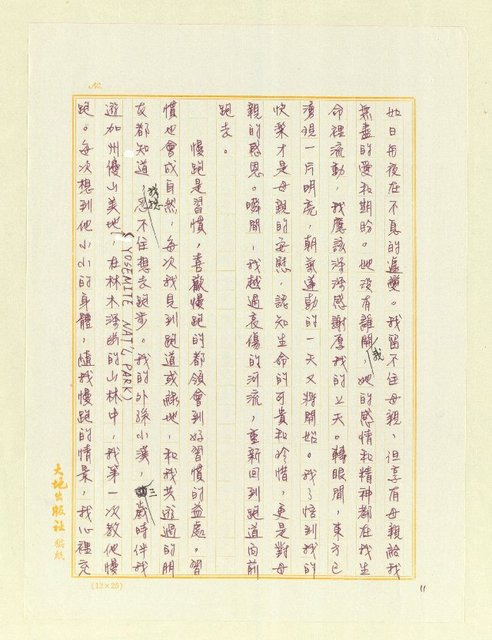 如日月夜在不息的運變。我留不住母親，但享有母親給我
無盡的愛和期盼。她沒有離開我，她的感情和精神都在我生
命裡流動，我應該深深感謝厚我的上天。轉眼間，東方已
湧現一片明亮，朝氣運動的一天又將開始。我了悟到我的
快樂才是母親的安慰，認知生命的可貴和珍惜，更是對母
親的感恩。瞬間，我越過哀傷的河流，重新回到跑道向前
跑去。
慢跑是習慣，喜歡慢跑的都領會到好習慣的益處。習
慣也會成自然，每次我見到跑道或綠地，和我共遊過的朋
友都知道我總忍不住想去跑步。我的外孫小漢，三歲時伴我
遊加州優山美地(YOSEMITE NAT'L PARK)，在林木深幽的山林中，我第一次教他慢
跑。每次想到他小小的身體，隨我慢跑的情景，我心裡充
No.
大地出版社稿紙
(12×25)
11